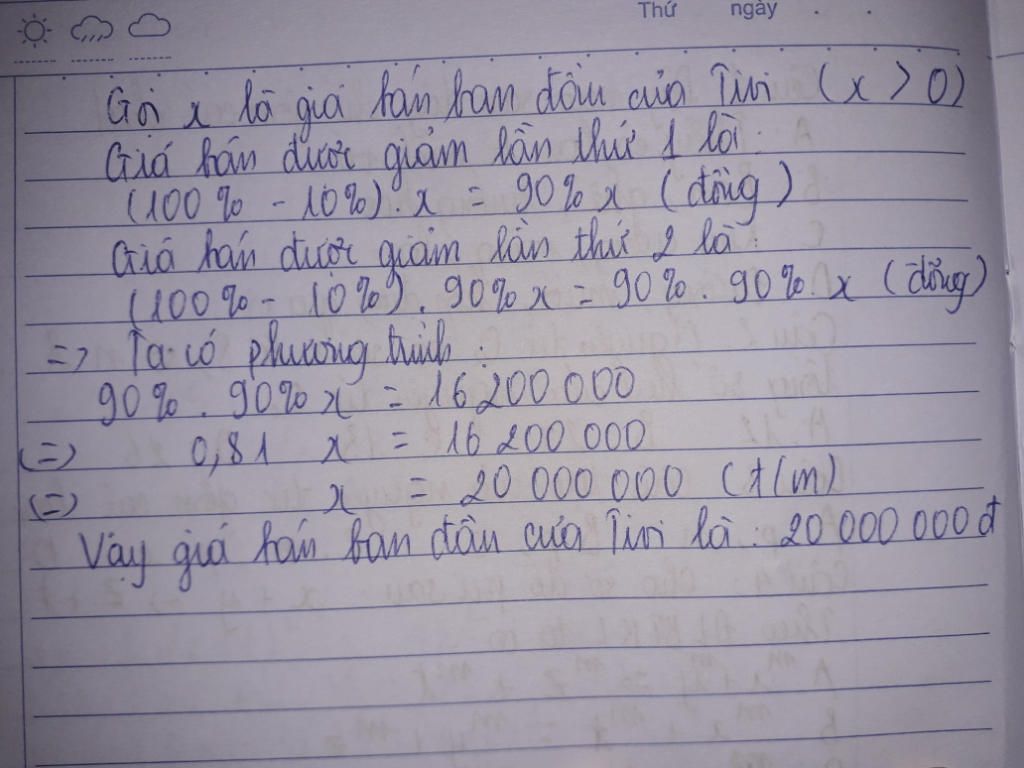 Thứ ngày . .
Gọi x là giá bán ban đầu của Tivi (x > 0)
Giá bán được giảm lần thứ 1 là:
(100% - 10%). x = 90% x (đồng)
Giá bán được giảm lần thứ 2 là:
(100% - 10%). 90% x = 90%. 90%. x (đồng)
=> Ta có phương trình:
90%. 90% x = 16 200 000
(=) 0,81 x = 16 200 000
(=) x = 20 000 000 (t/m)
Vậy giá bán ban đầu của Tivi là: 20 000 000 đ